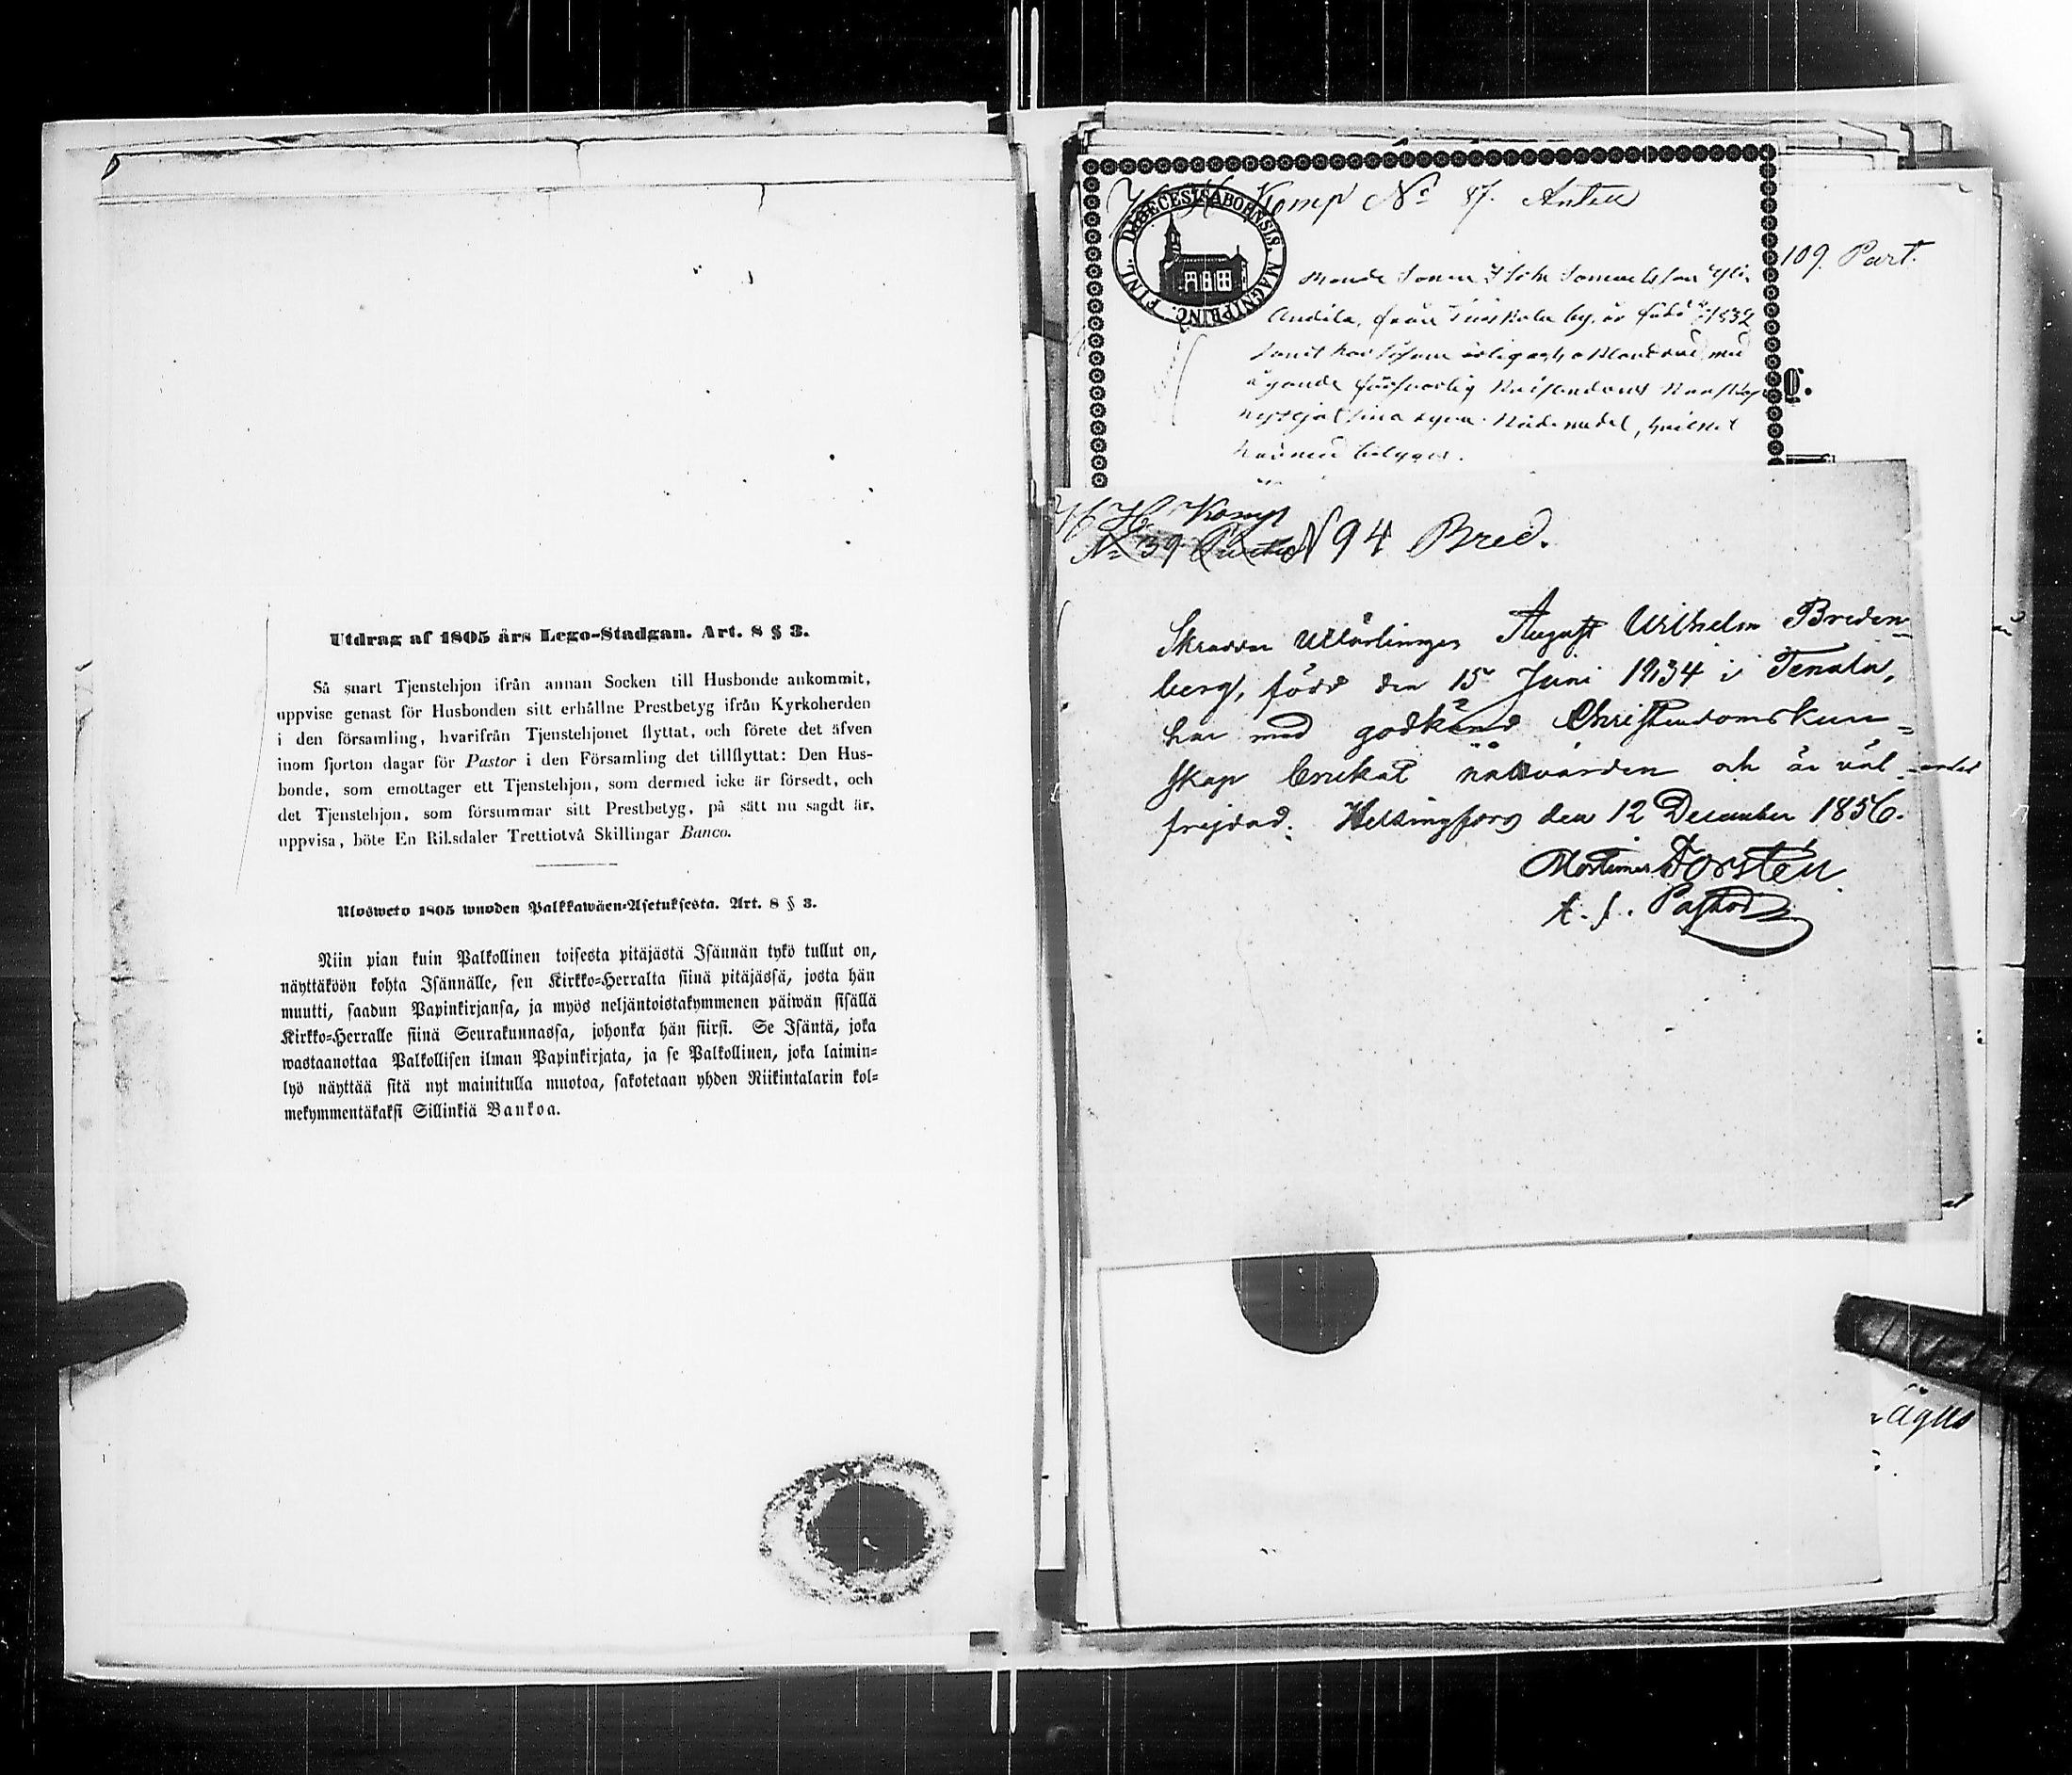 Utdrag af 1805 års Lego-Stadgan. Art. 8 § 3.
Så snart Tjenstehjon ifrån annan Socken till Husbonde ankommit,
uppvise genast för Husbonden sitt erhållne Prestbetyg ifrån Kyrkoherden
i den församling, hvarifrån Tjenstehjonet flyttat, och förete det äfven
inom fjorton dagar för Pastor i den Församling det tillflyttat: Den Hus-
bonde, som emottager ett Tjenstehjon, som dermed icke är försedt, och
det Tjenstehjon, som försummar sitt Prestbetyg, på sätt nu sagdt är,
uppvisa, böte En Riksdaler Trettiotvå Skillingar Banco.
Ulosweto 1805 wuoden Palkkawäen-Asetuksesta. Art. 8 § 3.
Niin pian kuin Palkollinen toisesta pitäjästä Isännän tykö tullut on,
näyttäköön kohta Isännälle, sen Kirkko-Herralta siinä pitäjässä, josta hän
muutti, saadun Papinkirjansa, ja myös neljäntoistakymmenen päiwän sisällä
Kirkko-Herralle siinä Seurakunnassa, johonka hän siirsi. Se Isäntä, joka
wastaanottaa Palkollisen ilman Papinkirjata, ja se Palkollinen, joka laimin-
lyö näyttää sitä nyt mainitulla muotoa, sakotetaan yhden Riikintalarin kol-
mekymmentäkaksi Sillinkiä Bankoa.
Komp No 87. Antell
DIOECESIS ABOENSIS. MAGNI PRINC. FINL.
109. Part.
Samuelsson Yli
Andila, från by, är född 1832
samt har
ägande försvarlig Christendoms Kunskap
nyttjat sina Nådemedel, hvilket
härmed betygas.
H. H. Komp
No 39 N 94 Bred.
Skraddar August Wilhelm Breden-
berg, född den 15 Juni 1834 i Tenala,
har med godkänd Christendomskun-
skap brukat nattvarden och är väl
frejdad. Helsingfors den 12 December 1856.
Mortimer Forstén
t. f. Pastor